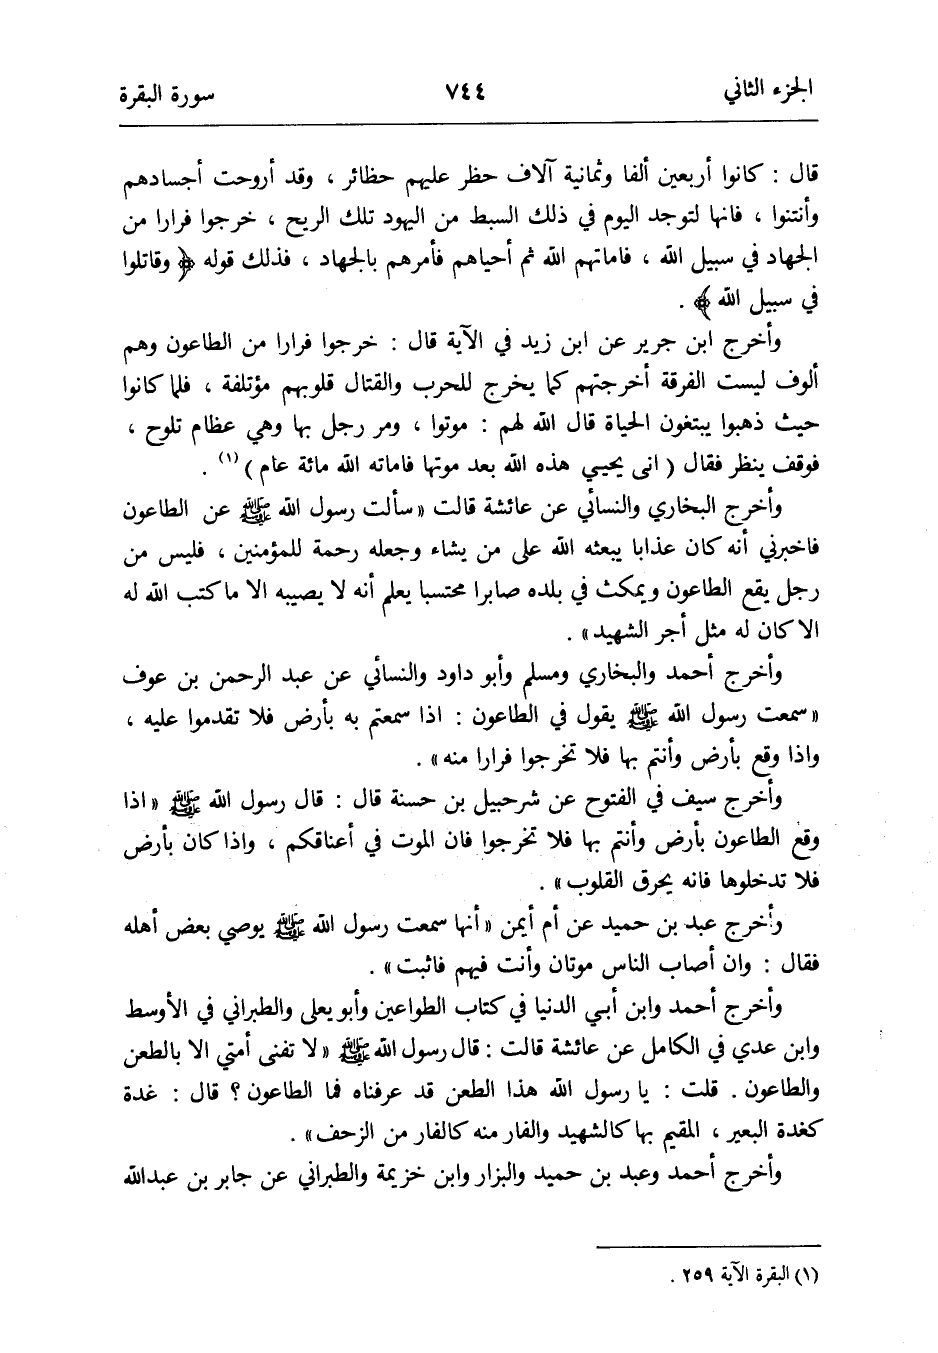 الجزء الثاني ٧٤٤ سورة البقرة
قال : كانوا أربعين ألفا وثمانية آلاف حظر عليهم حظائر ، وقد أروحت أجسادهم
وأنتنوا ، فانها لتوجد اليوم في ذلك السبط من اليهود تلك الريح ، خرجوا فرارا من
الجهاد في سبيل الله ، فاماتهم الله ثم أحياهم فأمرهم بالجهاد ، فذلك قوله ﴿ وقاتلوا
في سبيل الله ﴾ .
وأخرج ابن جرير عن ابن زيد في الآية قال : خرجوا فرارا من الطاعون وهم
ألوف ليست الفرقة أخرجتهم كما يخرج للحرب والقتال قلوبهم مؤتلفة ، فلما كانوا
حيث ذهبوا يبتغون الحياة قال الله لهم : موتوا ، ومر رجل بها وهي عظام تلوح ،
فوقف ينظر فقال ( انى يحيي هذه الله بعد موتها فاماته الله مائة عام ) (١) .
وأخرج البخاري والنسائي عن عائشة قالت « سألت رسول الله ﷺ عن الطاعون
فاخبرني أنه كان عذابا يبعثه الله على من يشاء وجعله رحمة للمؤمنين ، فليس من
رجل يقع الطاعون ويمكث في بلده صابرا محتسبا يعلم أنه لا يصيبه الا ما كتب الله له
الا كان له مثل أجر الشهيد » .
وأخرج أحمد والبخاري ومسلم وأبو داود والنسائي عن عبد الرحمن بن عوف
« سمعت رسول الله ﷺ يقول في الطاعون : اذا سمعتم به بأرض فلا تقدموا عليه ،
واذا وقع بأرض وأنتم بها فلا تخرجوا فرارا منه » .
وأخرج سيف في الفتوح عن شرحبيل بن حسنة قال : قال رسول الله ﷺ « اذا
وقع الطاعون بأرض وأنتم بها فلا تخرجوا فان الموت في أعناقكم ، واذا كان بأرض
فلا تدخلوها فانه يحرق القلوب » .
وأخرج عبد بن حميد عن أم أيمن « أنها سمعت رسول الله ﷺ يوصي بعض أهله
فقال : وان أصاب الناس موتان وأنت فيهم فاثبت » .
وأخرج أحمد وابن أبي الدنيا في كتاب الطواعين وأبو يعلى والطبراني في الأوسط
وابن عدي في الكامل عن عائشة قالت : قال رسول الله ﷺ « لا تفنى أمتي الا بالطعن
والطاعون . قلت : يا رسول الله هذا الطعن قد عرفناه فما الطاعون ؟ قال : غدة
كغدة البعير ، المقيم بها كالشهيد والفار منه كالفار من الزحف » .
وأخرج أحمد وعبد بن حميد والبزار وابن خزيمة والطبراني عن جابر بن عبدالله
(١) البقرة الآية ٢٥٩ .